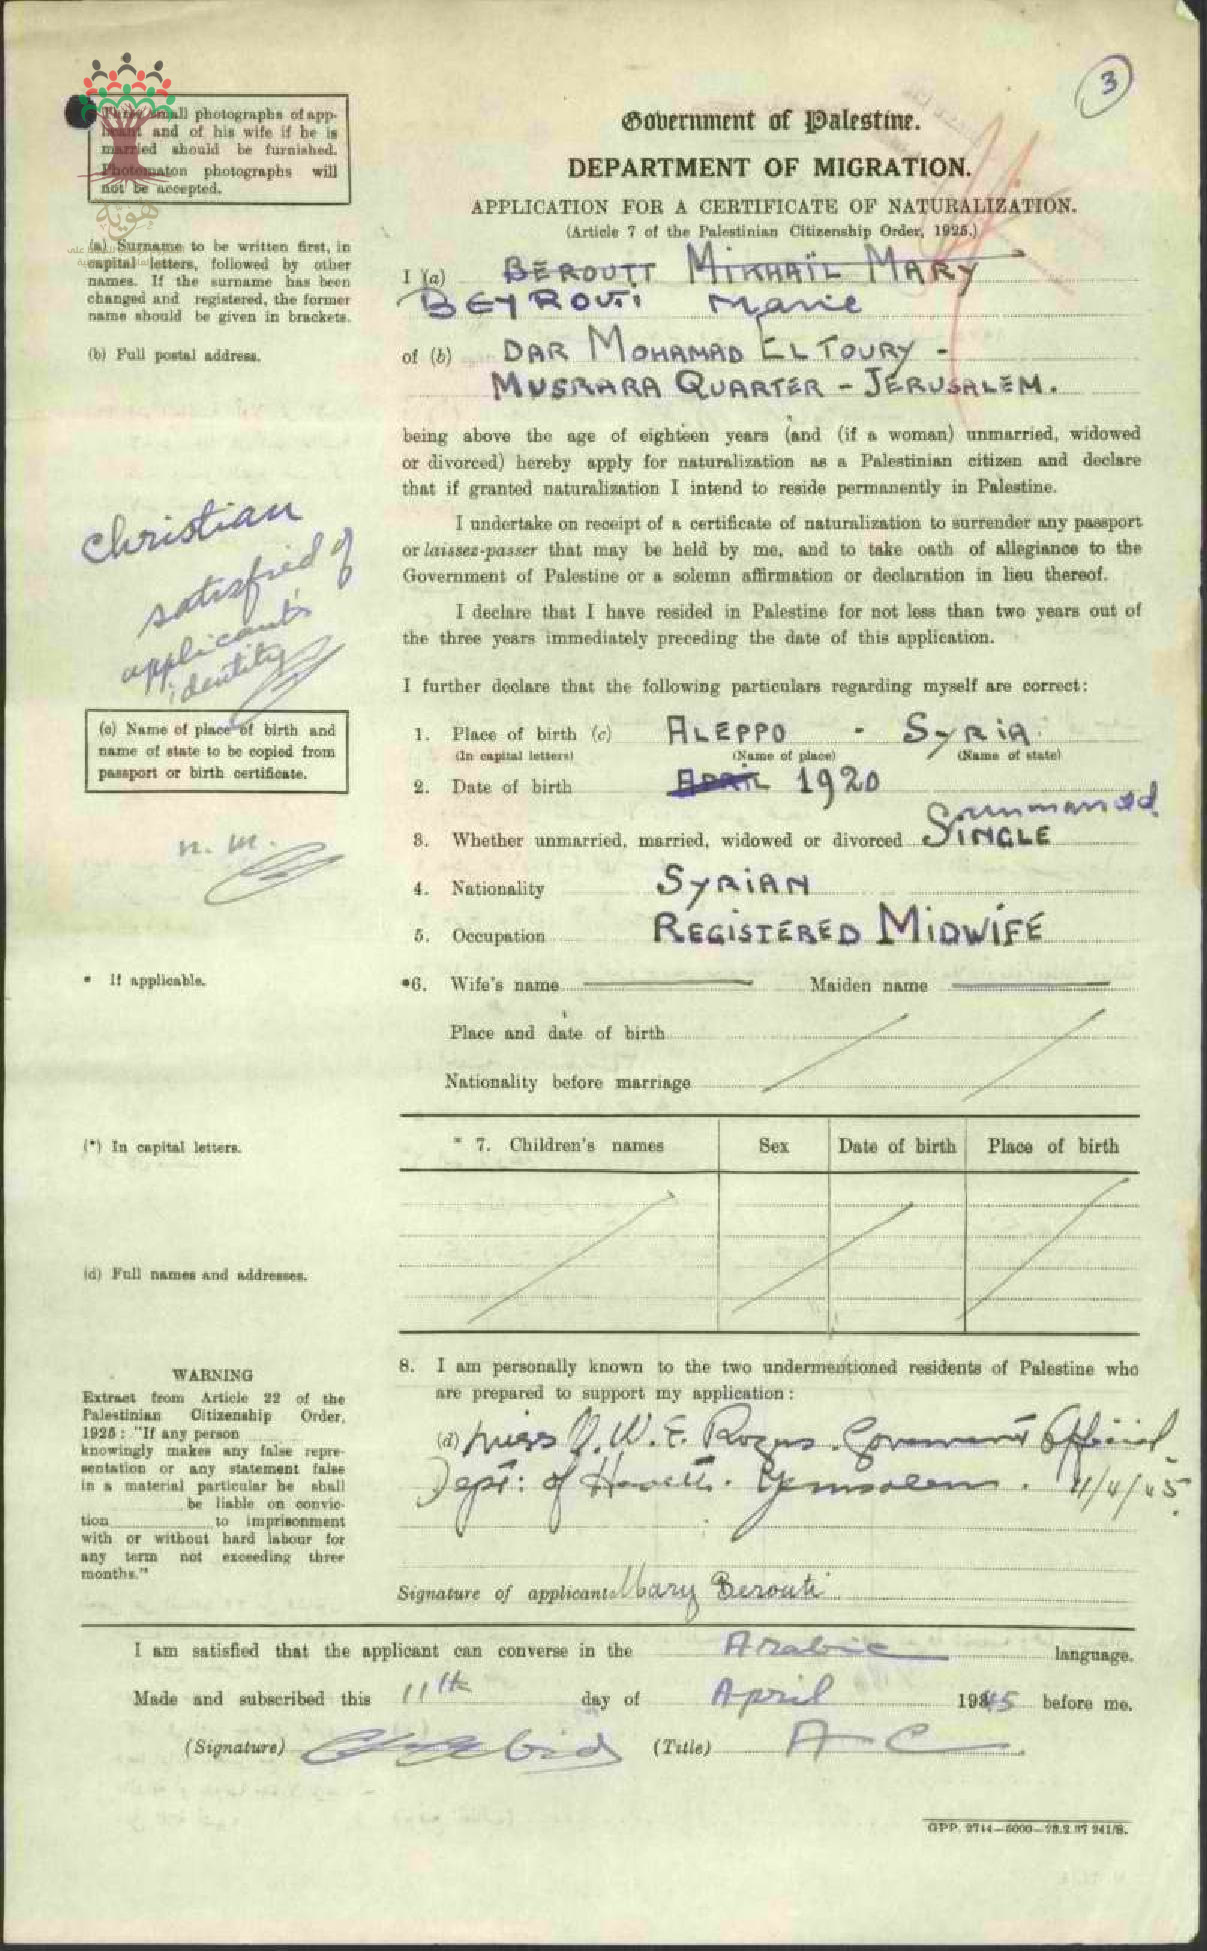 3
Three small photographs of app-
licant and of his wife if he is
married should be furnished.
Photomaton photographs will
not be accepted.
هوية
Government of Palestine.
DEPARTMENT OF MIGRATION.
APPLICATION FOR A CERTIFICATE OF NATURALIZATION.
(Article 7 of the Palestinian Citizenship Order, 1925.)
(a) Surname to be written first, in
capital letters, followed by other
names. If the surname has been
changed and registered, the former
name should be given in brackets.
(b) Full postal address.
I (a) BEROUTT MIKHAÏL MARY
BEYROUTI Marie
of (b) DAR MOHAMAD EL TOURY -
MUSRARA QUARTER - JERUSALEM.
being above the age of eighteen years (and (if a woman) unmarried, widowed
or divorced) hereby apply for naturalization as a Palestinian citizen and declare
that if granted naturalization I intend to reside permanently in Palestine.
I undertake on receipt of a certificate of naturalization to surrender any passport
or laissez-passer that may be held by me, and to take oath of allegiance to the
Government of Palestine or a solemn affirmation or declaration in lieu thereof.
I declare that I have resided in Palestine for not less than two years out of
the three years immediately preceding the date of this application.
I further declare that the following particulars regarding myself are correct:
Christian
satisfied of
applicant's
identity
(c) Name of place of birth and
name of state to be copied from
passport or birth certificate.
n. m.
1. Place of birth (c) ALEPPO - SYRIA.
(In capital letters) (Name of place) (Name of state)
2. Date of birth APRIL 1920
unmarried
3. Whether unmarried, married, widowed or divorced SINGLE
4. Nationality SYRIAN
5. Occupation REGISTERED MIDWIFE
* If applicable.
*6. Wife's name Maiden name
Place and date of birth
Nationality before marriage
(*) In capital letters.
* 7. Children's names Sex Date of birth Place of birth
(d) Full names and addresses.
8. I am personally known to the two undermentioned residents of Palestine who
are prepared to support my application:
(d) Miss J. W. E. Rogers. Government Official
Dept: of Health. Jerusalem. 11/4/45.
WARNING
Extract from Article 22 of the
Palestinian Citizenship Order,
1925: "If any person
knowingly makes any false repre-
sentation or any statement false
in a material particular he shall
be liable on convic-
tion to imprisonment
with or without hard labour for
any term not exceeding three
months."
Signature of applicant Mary Berouti
I am satisfied that the applicant can converse in the Arabic language.
Made and subscribed this 11th day of April 1945 before me.
(Signature) (Title) A C
GPP. 9744—6000—28.2.37 241/S.